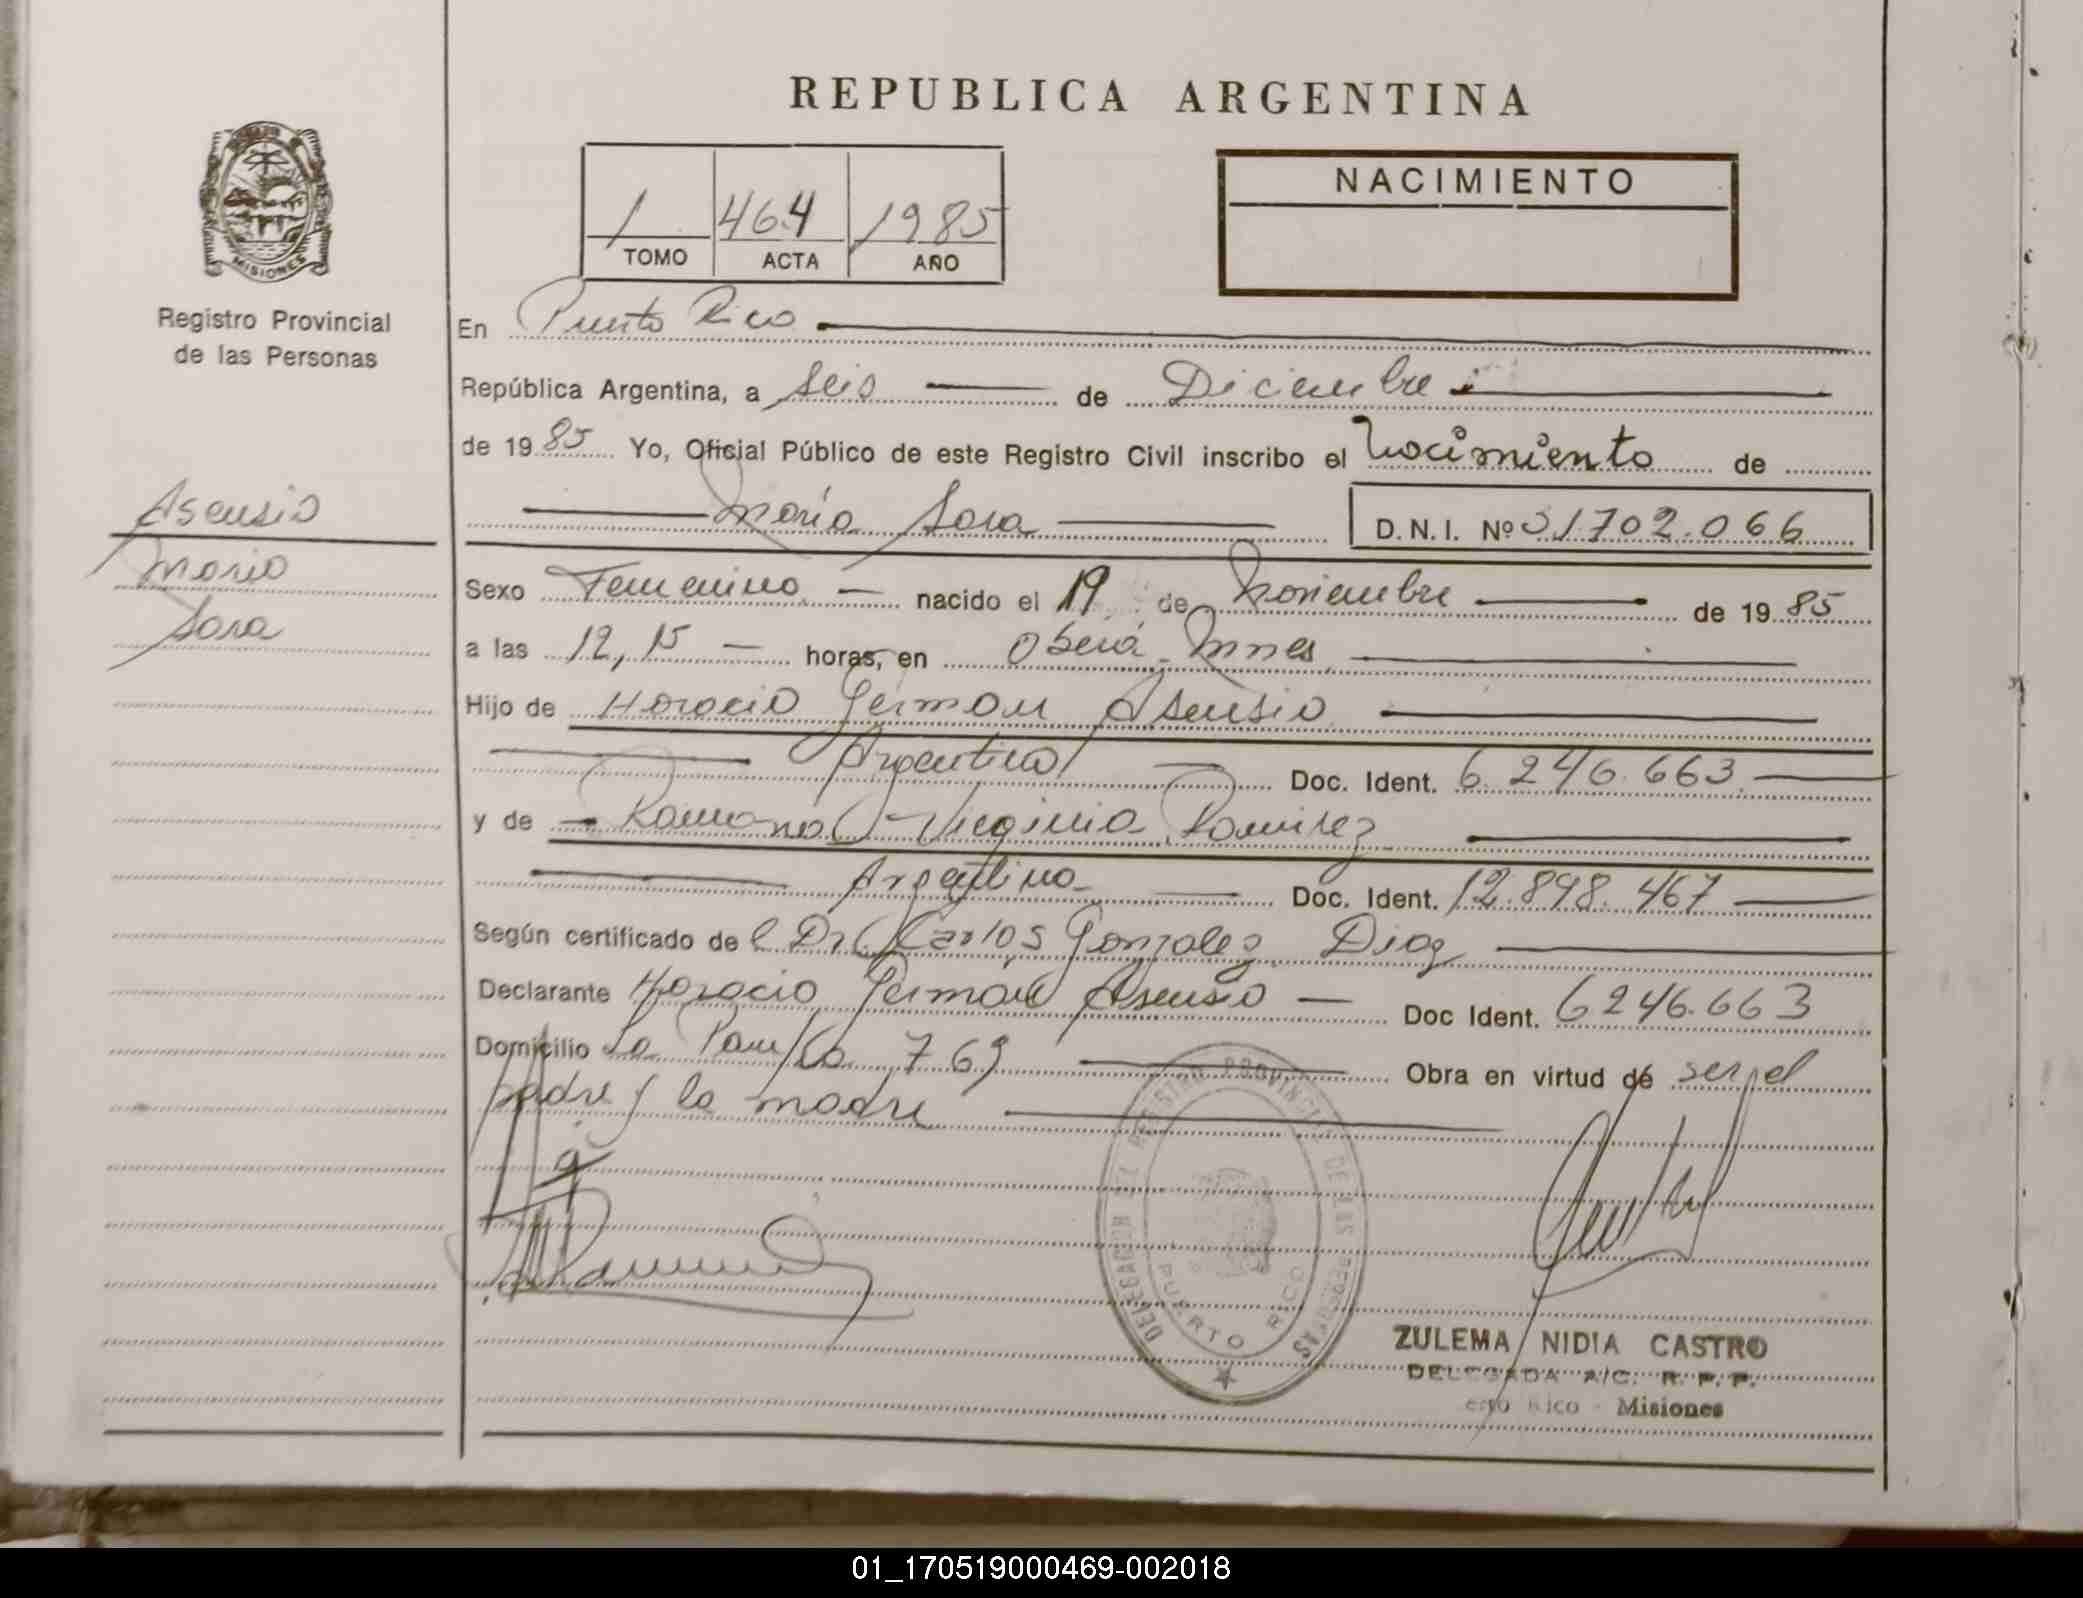 REPUBLICA ARGENTINA
MISIONES
Registro Provincial
de las Personas
1 464 1985
TOMO ACTA AÑO
NACIMIENTO
En Puerto Rico
República Argentina, a Seis de Diciembre
de 1985 Yo, Oficial Público de este Registro Civil inscribo el Nacimiento de
María Sara D.N.I. Nº 31.702.066
Asensio
María
Sara
Sexo Femenino nacido el 19 de Noviembre de 1985
a las 12,15 horas, en Oberá Mnes
Hijo de Horacio Germán Asensio
Argentina Doc. Ident. 6.246.663
y de Ramona Virginia Ramirez
Argentina Doc. Ident. 12.898.467
Según certificado del Dr. Carlos Gonzalez Diaz
Declarante Horacio Germán Asensio Doc Ident. 6246.663
Domicilio La Pampa 769 Obra en virtud de ser el
padre y la madre
DELEGACION DEL REGISTRO PROVINCIAL DE LAS PERSONAS
PUERTO RICO
ZULEMA NIDIA CASTRO
DELEGADA A/C. R. P. P.
erto Rico - Misiones
01_170519000469-002018